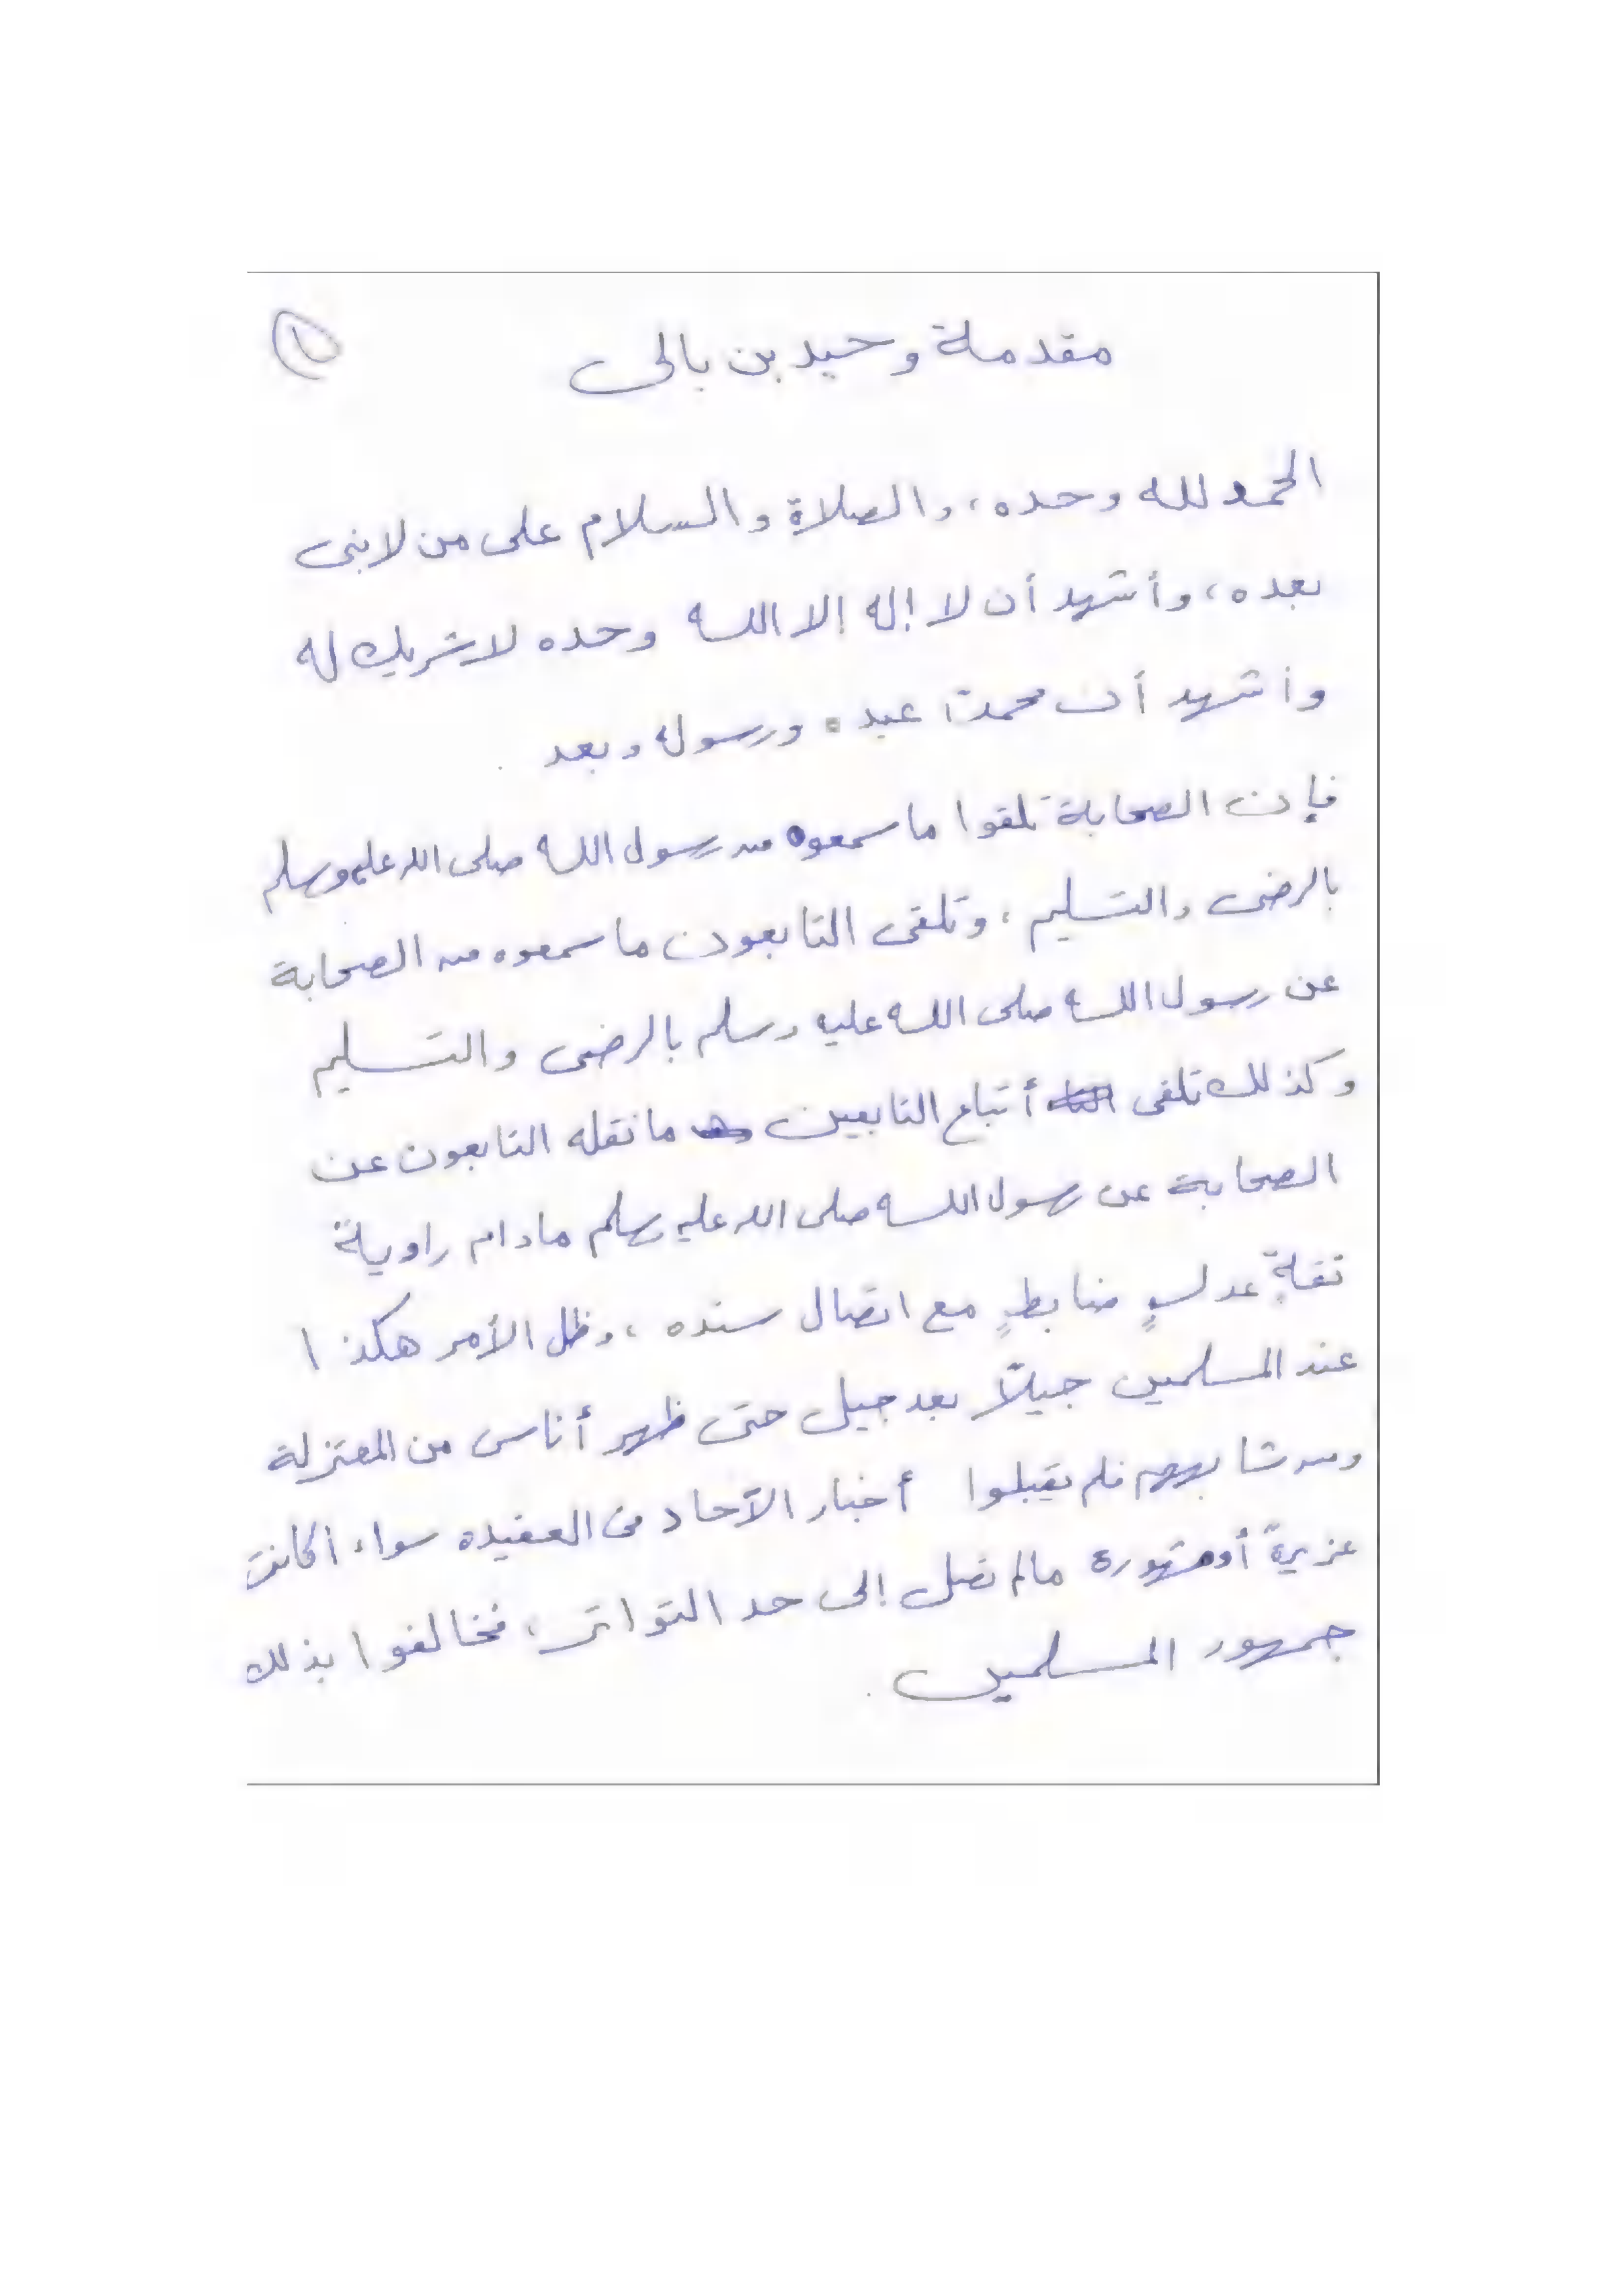 مقدمة وحيد بن بالى
١
الحمد لله وحده، والصلاة والسلام على من لا نبى
بعده، وأشهد أن لا إله إلا الله وحده لا شريك له
وأشهد أن محمدًا عبده ورسوله وبعد
فإن الصحابة تلقوا ما سمعوه من رسول الله صلى الله عليه وسلم
بالرضى والتسليم، وتلقى التابعون ما سمعوه من الصحابة
عن رسول الله صلى الله عليه وسلم بالرضى والتسليم
وكذلك تلقى أتباع التابعين ما نقله التابعون عن
الصحابة عن رسول الله صلى الله عليه وسلم مادام راوية
ثقةٍ عدلٍ ضابطٍ مع اتصال سنده، وظل الأمر هكذا
عند المسلمين جيلاً بعد جيل حتى ظهر أناس من المعتزلة
ومن شابههم فلم يقبلوا أخبار الآحاد فى العقيده سواء أكانت
عزيزةً أو مشهورة مالم تصل إلى حد التواتر، فخالفوا بذلك
جمهور المسلمين.